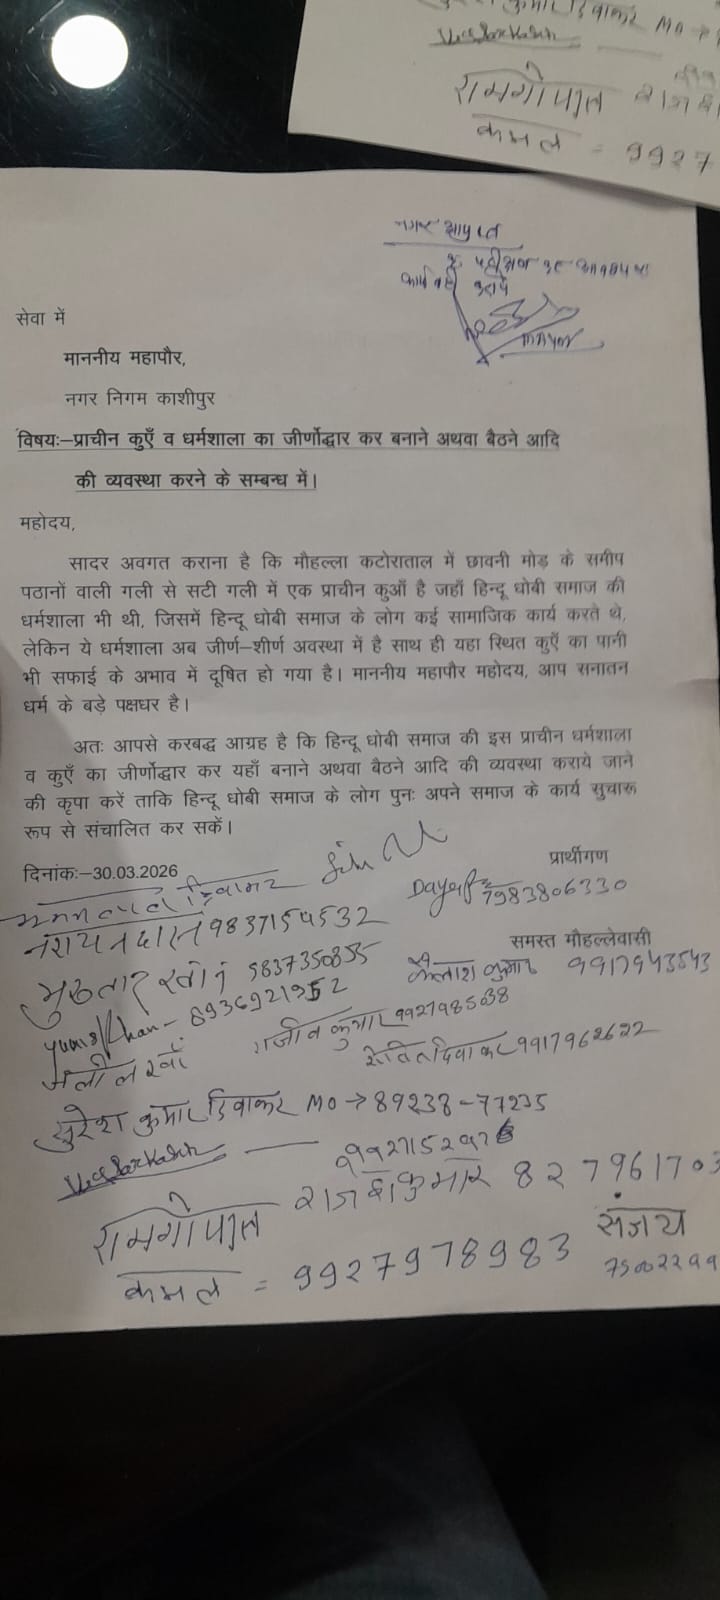 कुमार दिवाकर MO →
रामगोपाल
कमल = 9927
नगर आयुक्त
कार्यवाही करायें
Mayor
सेवा में
माननीय महापौर,
नगर निगम काशीपुर
विषयः–प्राचीन कुएँ व धर्मशाला का जीर्णोद्धार कर बनाने अथवा बैठने आदि
की व्यवस्था करने के सम्बन्ध में।
महोदय,
सादर अवगत कराना है कि मौहल्ला कटोराताल में छावनी मोड़ के समीप
पठानों वाली गली से सटी गली में एक प्राचीन कुआँ है जहाँ हिन्दू धोबी समाज की
धर्मशाला भी थी, जिसमें हिन्दू धोबी समाज के लोग कई सामाजिक कार्य करते थे,
लेकिन ये धर्मशाला अब जीर्ण–शीर्ण अवस्था में है साथ ही यहा स्थित कुएँ का पानी
भी सफाई के अभाव में दूषित हो गया है। माननीय महापौर महोदय, आप सनातन
धर्म के बड़े पक्षधर है।
अतः आपसे करबद्ध आग्रह है कि हिन्दू धोबी समाज की इस प्राचीन धर्मशाला
व कुएँ का जीर्णोद्धार कर यहाँ बनाने अथवा बैठने आदि की व्यवस्था कराये जाने
की कृपा करें ताकि हिन्दू धोबी समाज के लोग पुनः अपने समाज के कार्य सुचारू
रूप से संचालित कर सकें।
दिनांकः–30.03.2026
प्रार्थीगण
दिवाकर
7983806330
नरायनदास 9837154532
समस्त मौहल्लेवासी
मुख्तार खाँन 9837350855
कैलाश कुमार 9917943543
Khan – 8936921952
राजीव कुमार 9927985038
खाँ
रोहित दिवाकर 9917962622
सुरेश कुमार दिवाकर MO → 89238–77235
राजेश कुमार 827961703
रामगोपाल
संजय
कमल = 9927978983